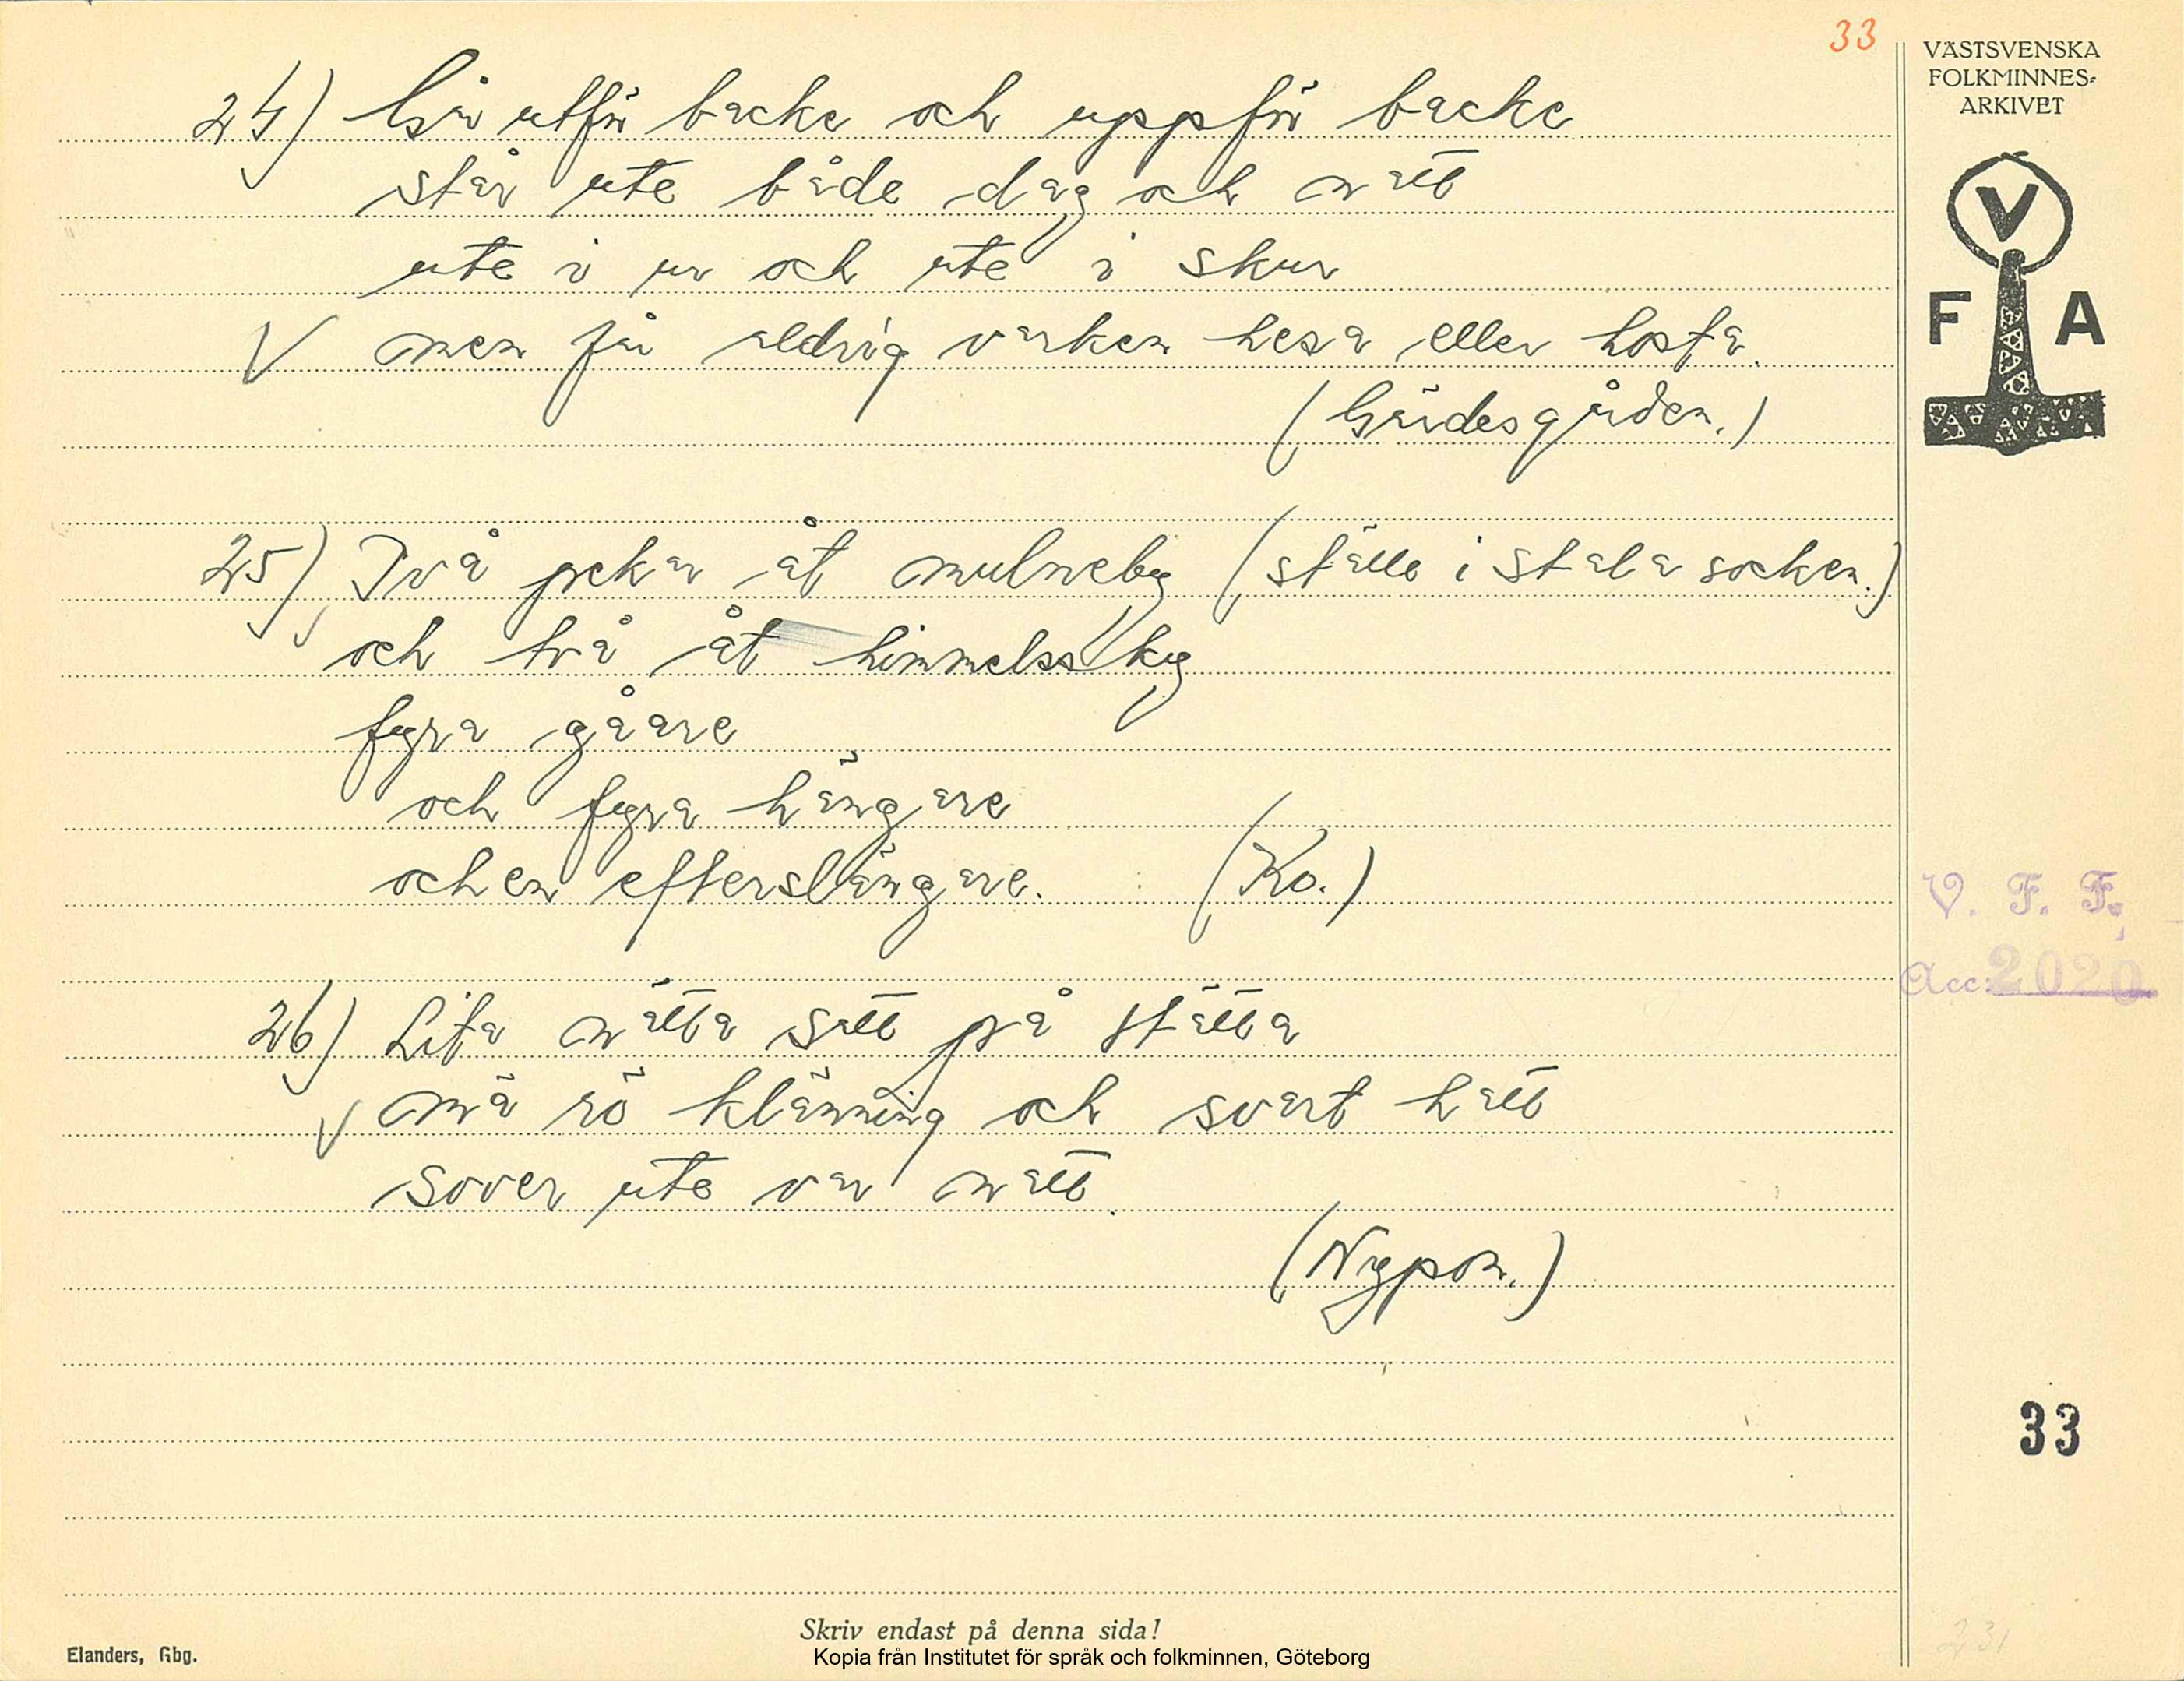 33
VÄSTSVENSKA
FOLKMINNES-
ARKIVET
V
F A
24) Går utför backe och uppför backe
står ute både dag och natt
ute i ur och ute i skur
V men får aldrig varken hesa eller hosta.
(Gärdesgården.)
25) Två pekar åt mulneby (ställe i Stala socken.)
och två åt himmelssky
fyra gåare
och fyra hängare
och en efterslängare. (Ko.)
V. F. F.
Acc: 2020
26) Lita nätta satt på stätta
V mä rö klänning och svart hatt
sover ute var natt.
(Nypon.)
33
Skriv endast på denna sida!
Elanders, Gbg.
Kopia från Institutet för språk och folkminnen, Göteborg
231